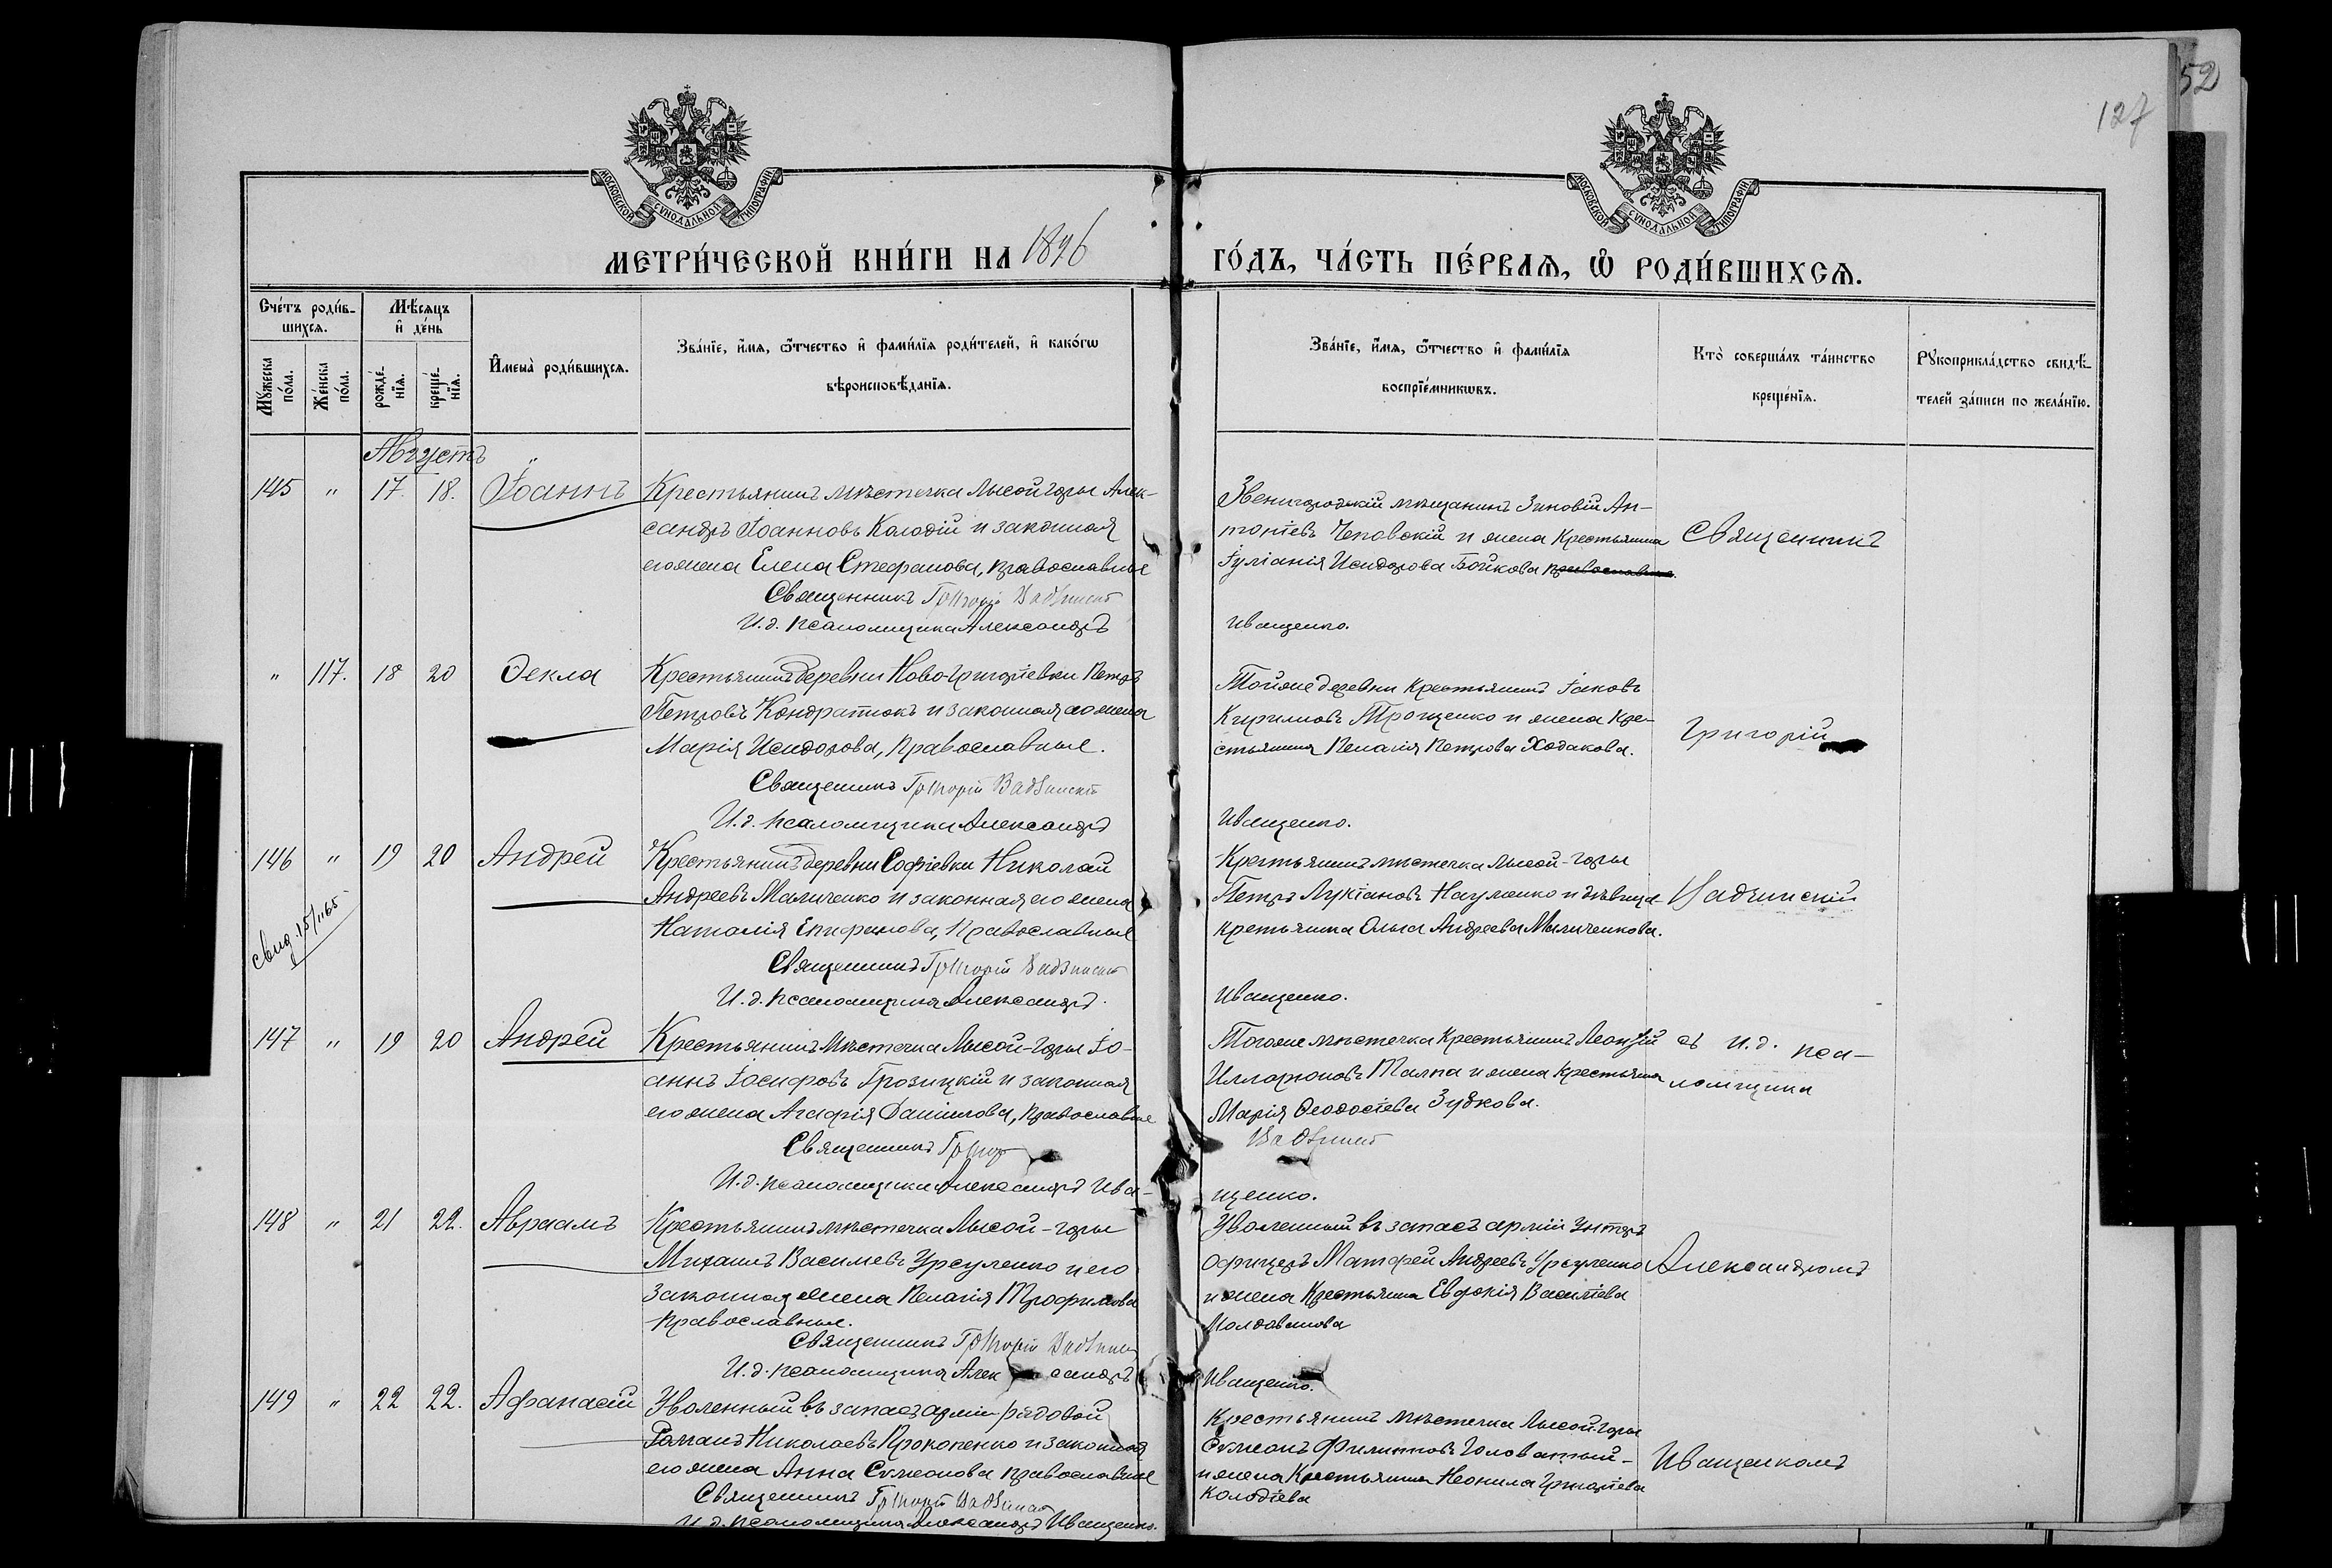 52
127
МОСКОВСКОЙ СѴНОДАЛЬНОЙ ТИПОГРАФІИ
МОСКОВСКОЙ СѴНОДАЛЬНОЙ ТИПОГРАФІИ
МЕТРИ́ЧЕСКОЙ КНИ́ГИ НА 1896
ГО́ДЪ, ЧА́СТЬ ПЕ́РВАѦ, Ѡ҆ РОДИ́ВШИХСѦ.
Сче́тъ роди́в-
шихсѧ.
Мѣ́сѧцъ
и҆ де́нь
Мꙋ́жеска
по́ла.
Же́нска
по́ла.
рожде́-
нїѧ.
креще́-
нїѧ.
И҆мена̀ роди́вшихсѧ.
Зва́нїе, и҆́мѧ, ѻ҆́тчество и҆ фами́лїѧ роди́телей, и҆ како́гѡ
вѣроисповѣ́данїѧ.
Зва́нїе, и҆́мѧ, ѻ҆́тчество и҆ фами́лїѧ
воспрїе́мникѡвъ.
Кто̀ соверша́лъ та́инство
креще́нїѧ.
Рꙋкоприкла́дство свидѣ́-
телей за́писи по жела́нїю.
Августъ
145 " 17. 18. Іоаннъ
Крестьянинъ мѣстечка Лысой горы Алек-
сандръ Іоанновъ Колодій и законная
его жена Елена Стефанова, православные
Священникъ Григорій Вадзинскій
И.д. псаломщика Александръ
Звенигородскій мѣщанинъ Зиновій Ан-
тоніевъ Чеповскій и жена крестьянина
Іуліанія Исидорова Бойкова православные.
Иващенко.
Священникъ
" 117. 18 20 Ѳекла
Крестьянинъ деревни Ново-Григоріевки Петръ
Петровъ Кондратюкъ и законная его жена
Марія Исидорова, православные.
Священникъ Григорій Вадзинскій
И.д. псаломщика Александръ
Тойже деревни крестьянинъ Іаковъ
Кириловъ Трощенко и жена кре-
стьянина Пелагія Петрова Ходакова.
Иващенко.
Григорій
146 " 19 20 Андрей
свид. 15/1165
Крестьянинъ деревни Софіевки Николай
Андреевъ Маличенко и законная его жена
Наталія Епифанова, Православные
Священникъ Григорій Вадзинскій
И.д. псаломщика Александръ.
Крестьянинъ мѣстечка Лысой-горы
Петръ Лукіановъ Науменко и дѣвица
крестьянка Ольга Андреева Маличенкова.
Иващенко.
Вадзинскій
147 " 19 20 Андрей
Крестьянинъ мѣстечка Лысой-горы Іо-
аннъ Іосифовъ Грозицкій и законная
его жена Агафія Даніилова, православные
Священникъ Григор
И.д. псаломщика Александръ Ива-
Тогоже мѣстечка крестьянинъ Леонтій
Илларіоновъ Талпа и жена крестьянина
Марія Ѳеодосіева Зубкова.
Вадзинскій
щенко.
съ и.д. пса-
ломщика
148 " 21 22. Авраамъ
Крестьянинъ мѣстечка Лысой-горы
Михаилъ Васильевъ Урсуленко и его
законная жена Пелагія Трофимова
православные.
Священникъ Григорій Вадзинск
И.д. псаломщика Александръ
Уволенный въ запасъ арміи унтеръ
офицеръ Матфей Андреевъ Урсуленко
и жена крестьянина Евдокія Василіева
Молдованова
Иващенко.
Александромъ
149 " 22 22. Афанасій
Уволенный въ запасъ арміи рядовой
Романъ Николаевъ Прокопенко и законная
его жена Анна Симеонова православные
Священникъ Григорій Вадзинскій
И.д. псаломщика Александръ Иващенко.
Крестьянинъ мѣстечка Лысой-горы
Симеонъ Филипповъ Головатый-
и жена крестьянина Неонила Григоріева
Колодіева
Иващенкомъ